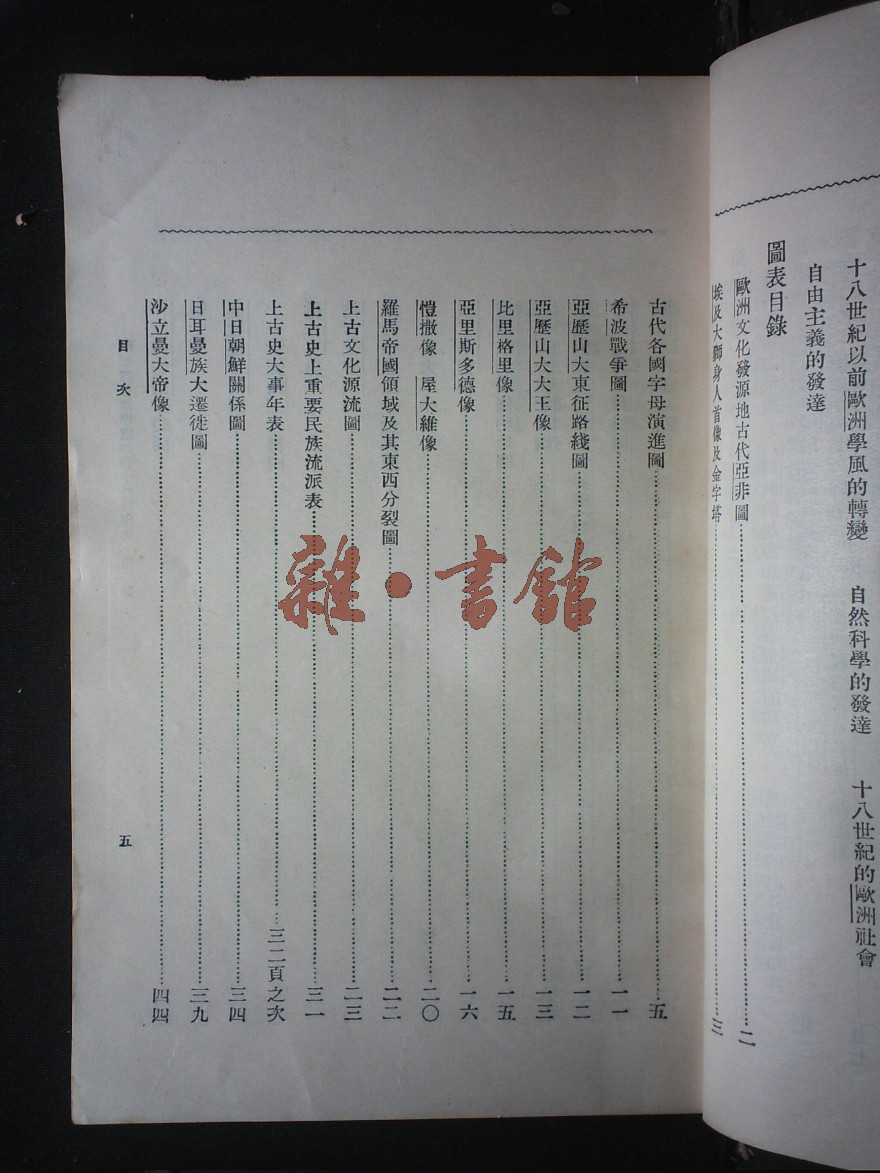 十八世紀以前歐洲學風的轉變　自然科學的發達　十八世紀的歐洲社會
自由主義的發達
圖表目錄
歐洲文化發源地古代亞非圖……二
埃及大獅身人首像及金字塔……三
古代各國字母演進圖……五
希波戰爭圖……一一
亞歷山大東征路綫圖……一二
亞歷山大大王像……一三
比里格里像……一五
亞里斯多德像……一六
愷撒像　屋大維像……二〇
羅馬帝國領域及其東西分裂圖……二二
上古文化源流圖……二三
上古史上重要民族流派表……三一
上古史大事年表……三二頁之次
中日朝鮮關係圖……三四
日耳曼族大遷徙圖……三九
沙立曼大帝像……四四
目次　五
雜·書館